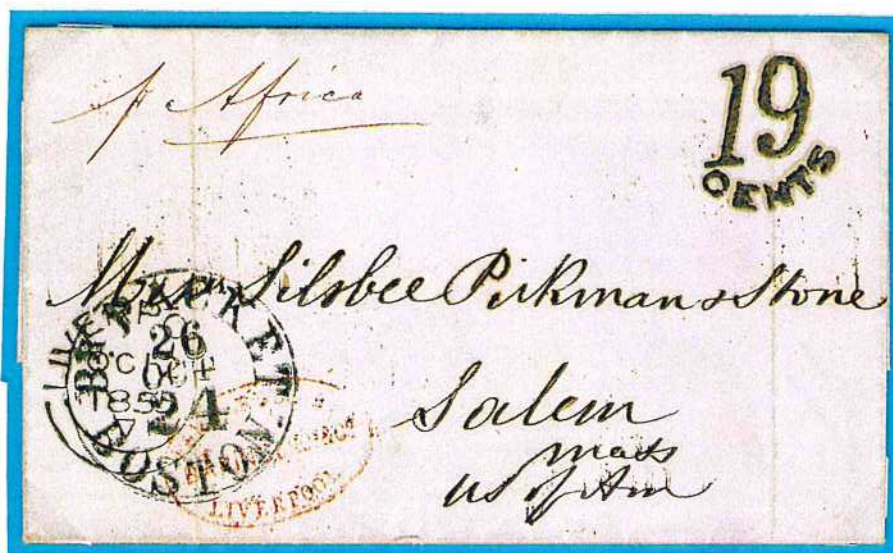 p Africa
19
CENTS
Messrs Silsbee Pickman & Stone
Salem
mass
US of Am
LIVERPOOL
BR. PACKET
26
Oct
24
BOSTON
LIVERPOOL